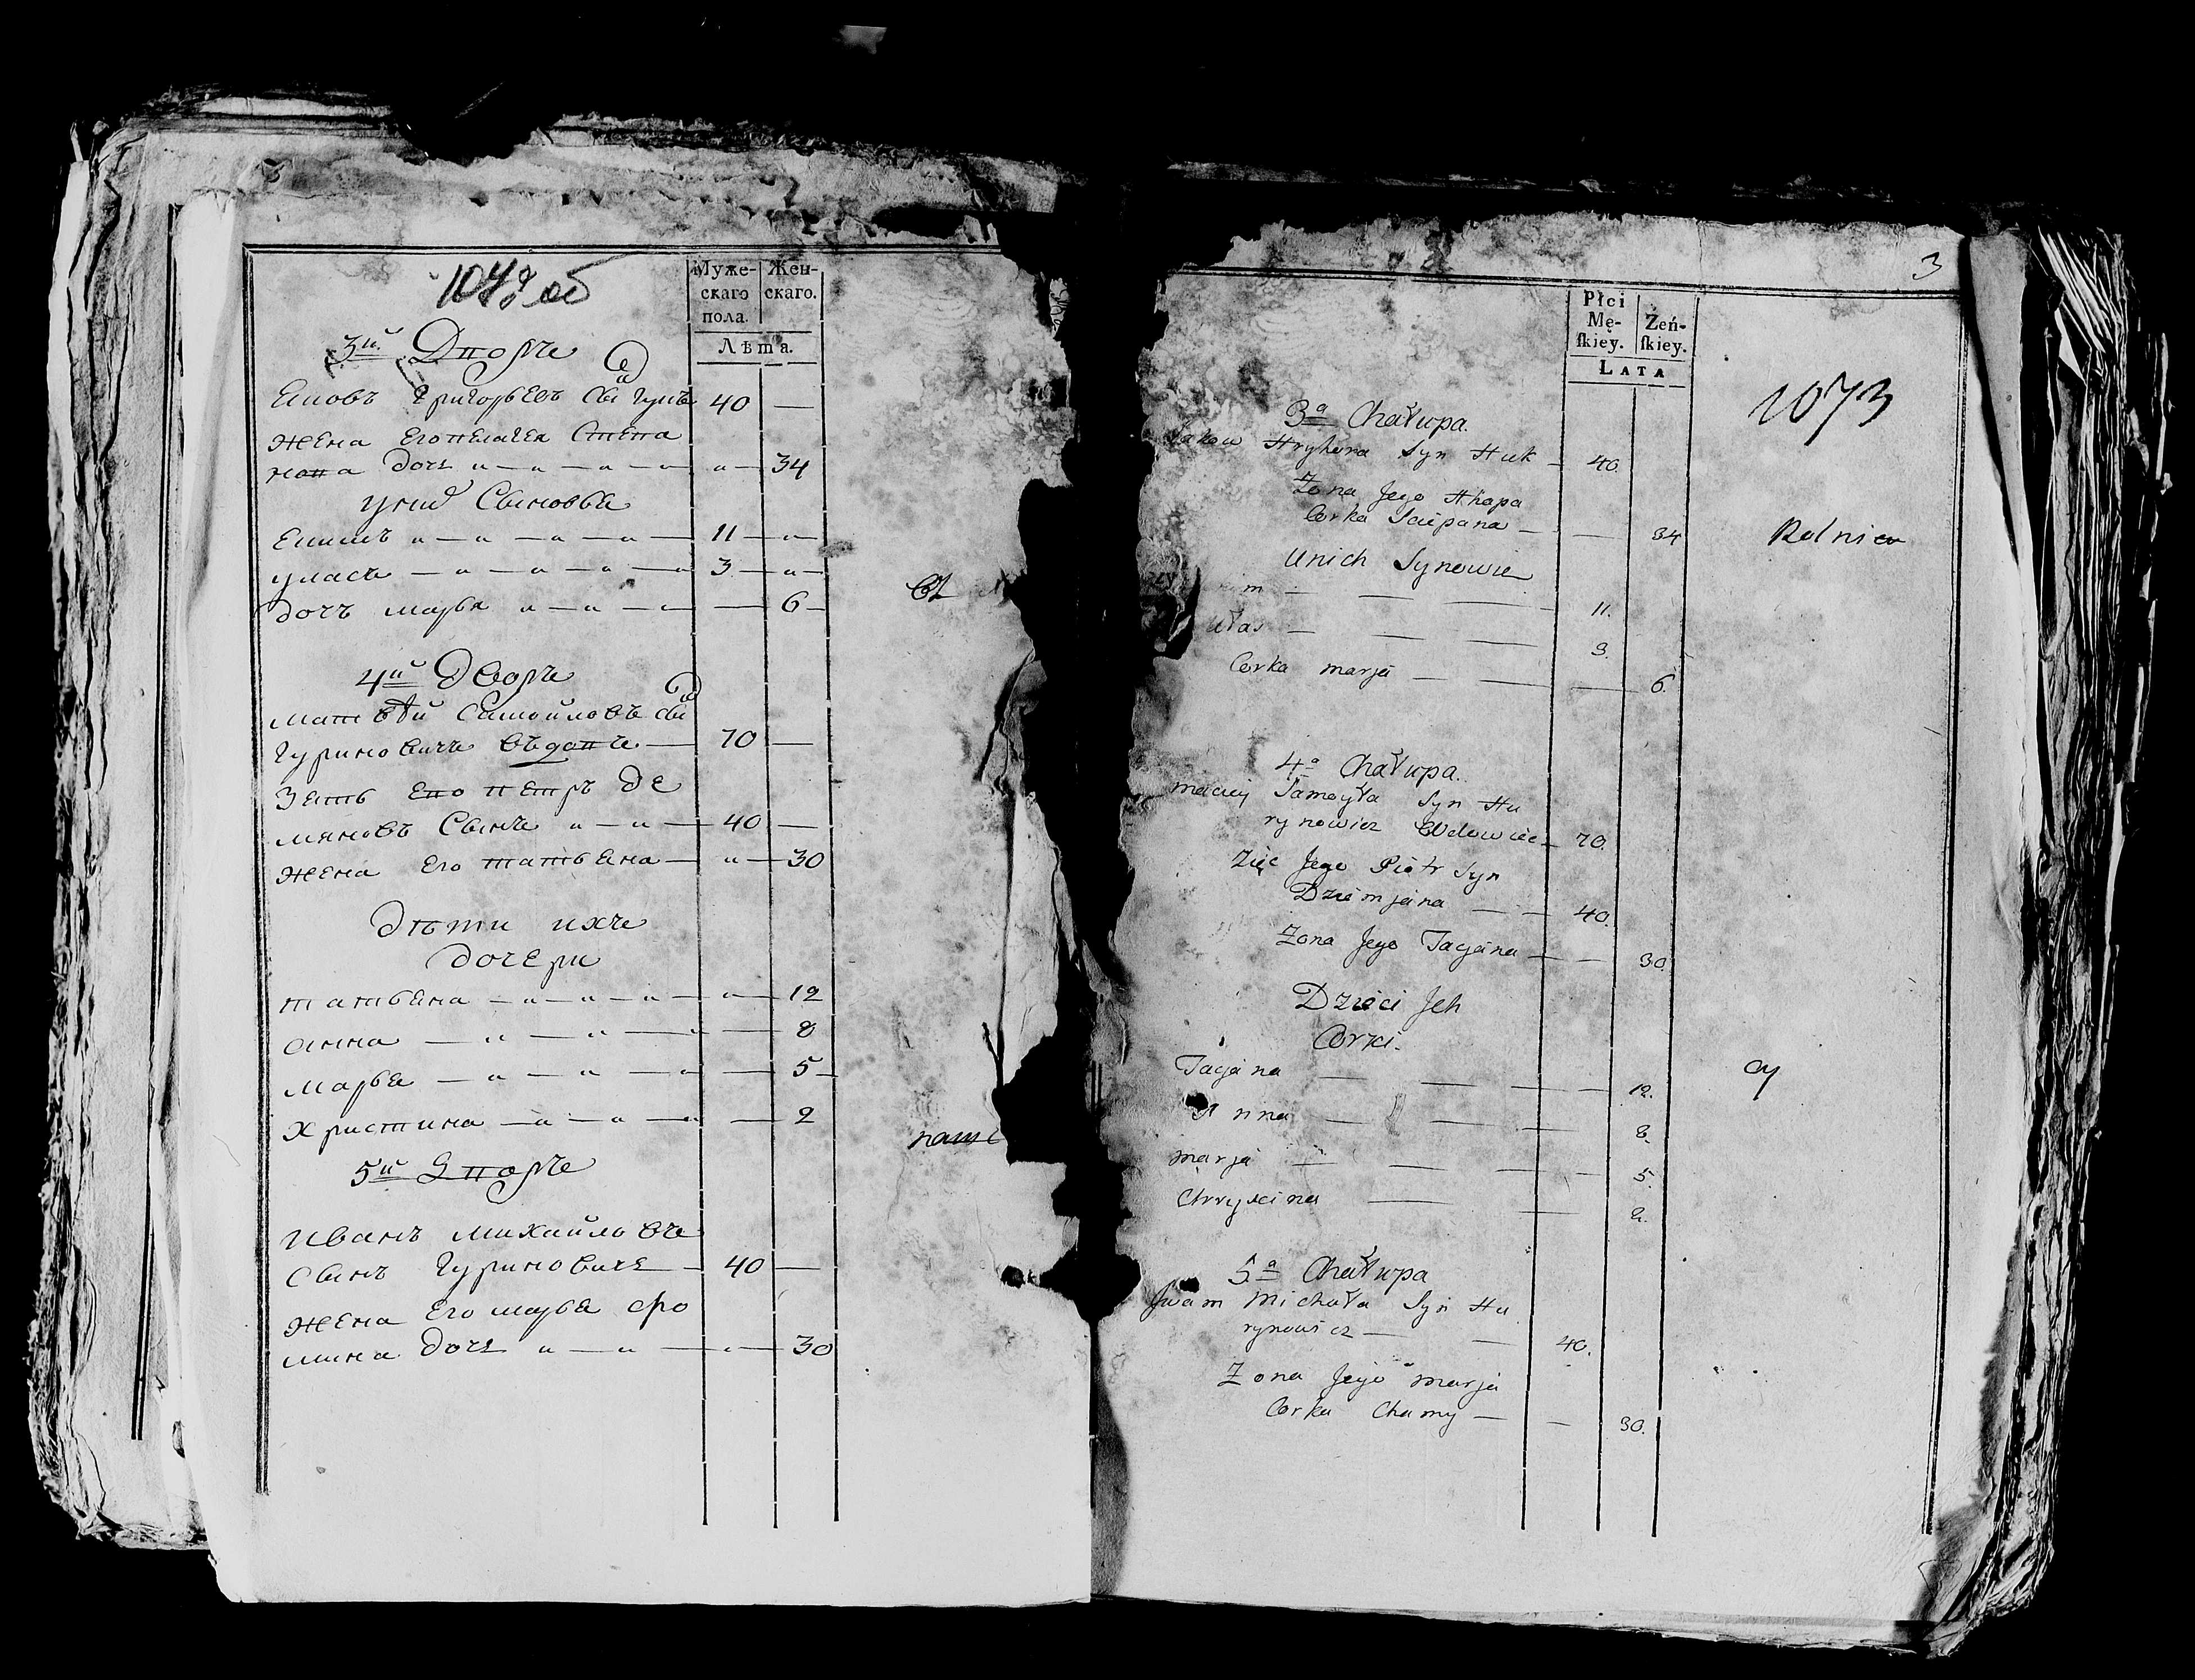 Муже-
скаго
пола.
Жен-
скаго.
Лѣта.
3й Дворъ
Яковъ Григорьевъ сынъ Гукъ 40 —
жена его Степа
нова дочь 34
у нихъ Сыновья
Ефимъ 11
Уласъ 3
дочь Марья 6
4й Дворъ
Матвѣй Самойловъ сынъ
Гуриновичъ вдовъ 70 —
Зять его Петръ Де
мяновъ Сынъ 40 —
жена его Татьяна 30
Дѣти ихъ
дочери
Татьяна 12
Анна 8
Марья 5
Христина 2
5й Дворъ
Иванъ Михайловъ
Сынъ Гуриновичъ 40 —
жена его Марья Фро
мина дочь 30
3
Płci
Mę-
ſkiey.
Żeń-
ſkiey.
LATA
1073
3a Chałupa.
Jakow Hryhora Syn Huk 40.
Żona Jego Ahapa
Corka Sciepana 34
Rolnicy
Unich Synowie
im 11.
Ułas 3.
Corka marja 6.
4a Chałupa.
maciej Samoyła Syn Hu
rynowicz Wdowiec 70.
Zięc Jego Piotr Syn
Dziemjana 40.
Żona Jego Tacjana 30.
Dzieci Jch
Corki.
Tacjana 12.
Anna 8.
marja 5.
Chryscina 2.
5a Chałupa
Jwan Michała Syn Hu
rynowicz 40.
Żona Jego marja
Corka Chomy 30.